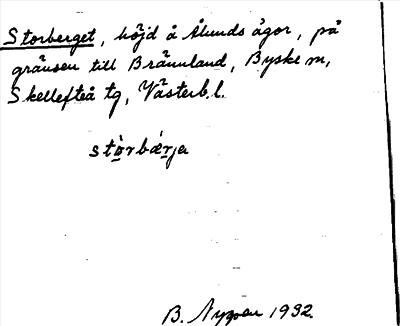 Storberget, höjd å Ålunds ägor, på
gränsen till Brännland, Byske m,
Skellefteå tg, Västerb.l.
stòrbǽrja
B. Nygren 1932.